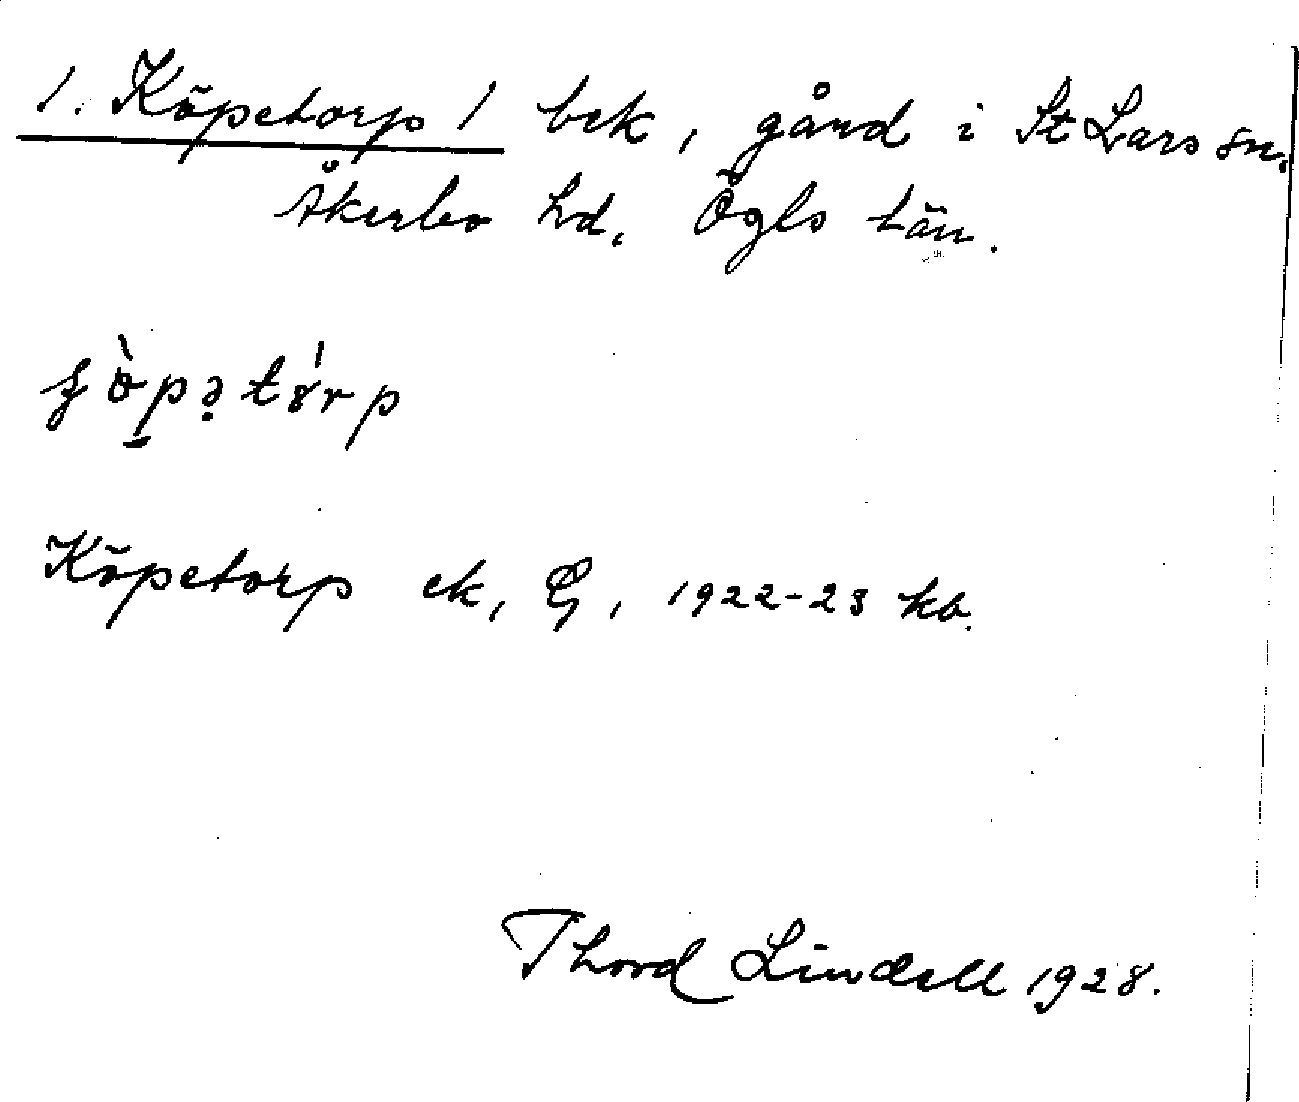 1. Köpetorp / bek, gård i St Lars sn.
Åkerbo hd. Ögls län.
Köpetorp ek, G, 1922-23 kb.
Thord Lindell 1928.